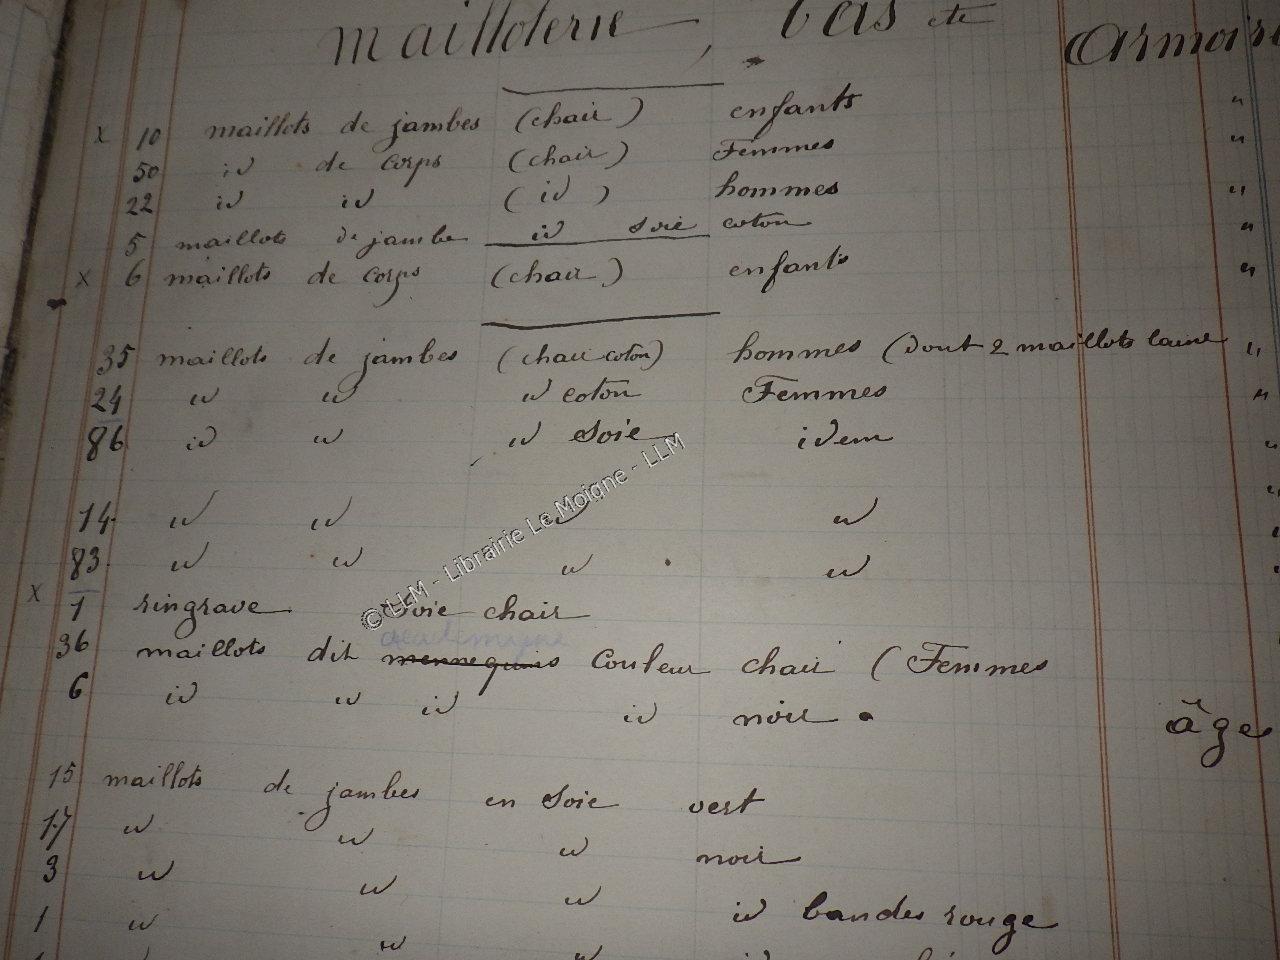 mailloterie, bas etc Armoire
x 10 maillots de jambes (chair) enfants "
50 id de Corps (chair) Femmes "
22 id id (id) hommes "
5 maillots de jambe id soie coton "
x 6 maillots de Corps (chair) enfants "
35 maillots de jambes (chair coton) hommes (dont 2 maillots laine "
24 id id id coton Femmes "
86 id id id Soie idem "
14 id id id id
83 id id id id
x 1 ringrave Soie chair
academique
36 maillots dit mennequins Couleur chair (Femmes
6 id id id id noir
âge
15 maillots de jambes en Soie vert
17 id id id noir
3 id id id id bandes rouge
1 id id id id
© LLM - Librairie Le Moigne - LLM